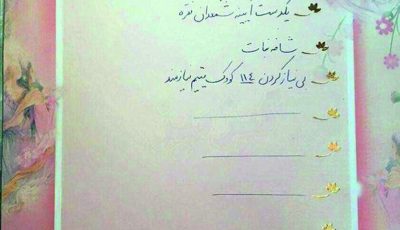 یکدست آیینه شمعدان نقره
شاخه نبات
بی نیاز کردن ۱۱٤ کودک یتیم نیازمند